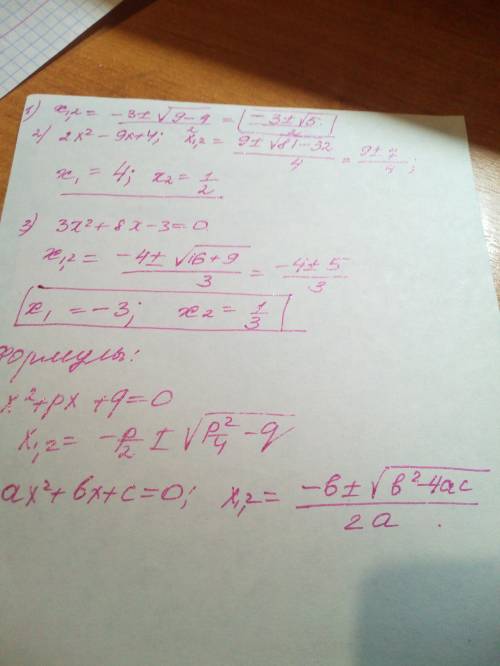 1) x1,2 = (-3 ± √(9-4))/2 = (-3 ± √5)/2
2) 2x² - 9x + 4; x1,2 = (9 ± √(81-32))/4 = (9 ± 7)/4;
x1 = 4; x2 = 1/2
3) 3x² + 8x - 3 = 0
x1,2 = (-4 ± √(16+9))/3 = (-4 ± 5)/3
x1 = -3; x2 = 1/3
Формулы:
x² + px + q = 0
x1,2 = -p/2 ± √(p²/4 - q)
ax² + bx + c = 0; x1,2 = (-b ± √(b² - 4ac))/2a.